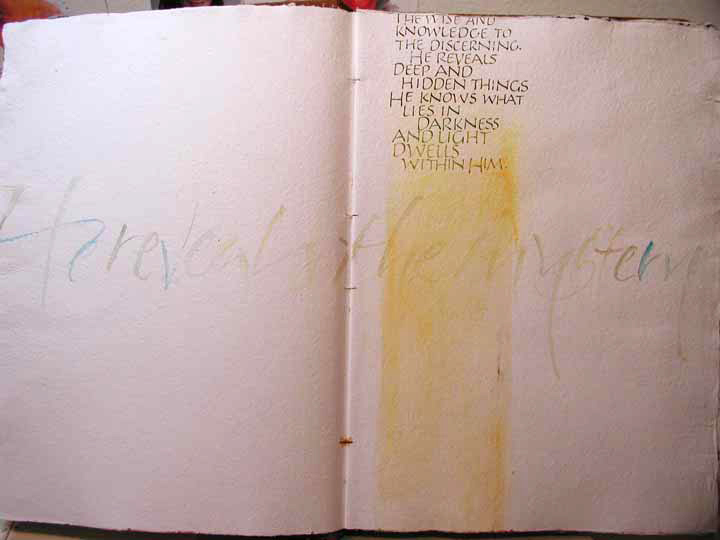 THE WISE AND
KNOWLEDGE TO
THE DISCERNING.
HE REVEALS
DEEP AND
HIDDEN THINGS
HE KNOWS WHAT
LIES IN
DARKNESS
AND LIGHT
DWELLS
WITHIN HIM.
He reveals the mystery